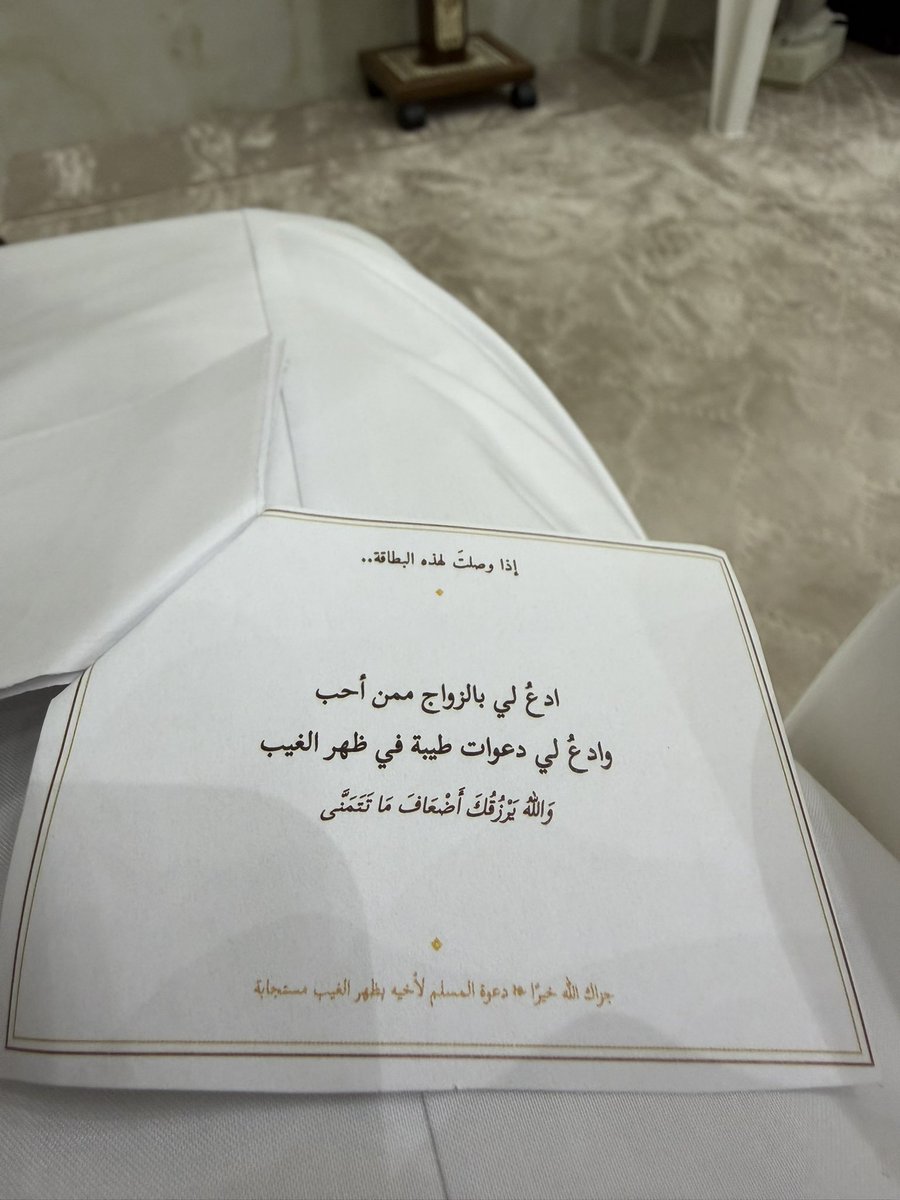 إذا وصلتَ لهذه البطاقة..
ادعُ لي بالزواج ممن أحب
وادعُ لي دعوات طيبة في ظهر الغيب
وَاللّٰه يَرْزُقُكَ أَضْعَافَ مَا تَتَمَنَّى
جزاك الله خيرًا ❊ دعوة المسلم لأخيه بظهر الغيب مستجابة